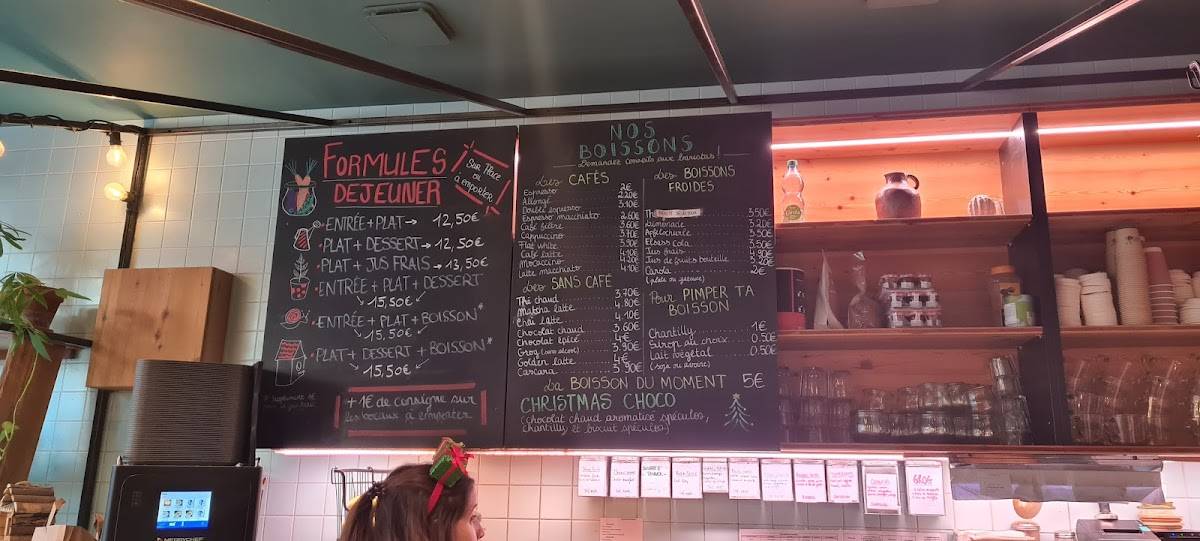 FORMULES
DEJEUNER
Sur Place
ou
à emporter
• ENTRÉE + PLAT → 12,50€
• PLAT + DESSERT → 12,50€
• PLAT + JUS FRAIS → 13,50€
• ENTRÉE + PLAT + DESSERT
↳ 15,50€ ↙
• ENTRÉE + PLAT + BOISSON*
↳ 15,50€ ↙
• PLAT + DESSERT + BOISSON*
↳ 15,50€ ↙
+1€ de consigne sur
les bocaux à emporter
NOS
BOISSONS
Demandez conseils aux baristas!
Les CAFÉS
Espresso 2€
Allongé 2.20€
Double espresso 3.10€
Espresso macchiato 2.60€
Café filtre 3.60€
Cappuccino 3.70€
Flat white 3.90€
Café latte 4.10€
Mocaccino 4.20€
Latte macchiato 4.10€
Les SANS CAFÉ
Thé chaud 3.70€
Matcha latte 4.80€
Chaï latte 4.10€
Chocolat chaud 3.60€
Chocolat épicé 4€
Grog (sans alcool) 3.90€
Golden latte 4€
Cascara 5.90€
Les BOISSONS
FROIDES
Thé 3.50€
Limonade 3.20€
Apfelschorle 3.50€
Elsass cola 3.50€
Jus frais 4.90€
Jus de fruits bouteille 3.20€
Carola 2€
Pour PIMPER TA
BOISSON
Chantilly 1€
Sirop au choix 0.50€
Lait végétal 0.50€
(soja ou avoine)
La BOISSON DU MOMENT 5€
CHRISTMAS CHOCO
(Chocolat chaud aromatisé spéculos,
chantilly et biscuit spéculos)
GROG
MERRYCHEF